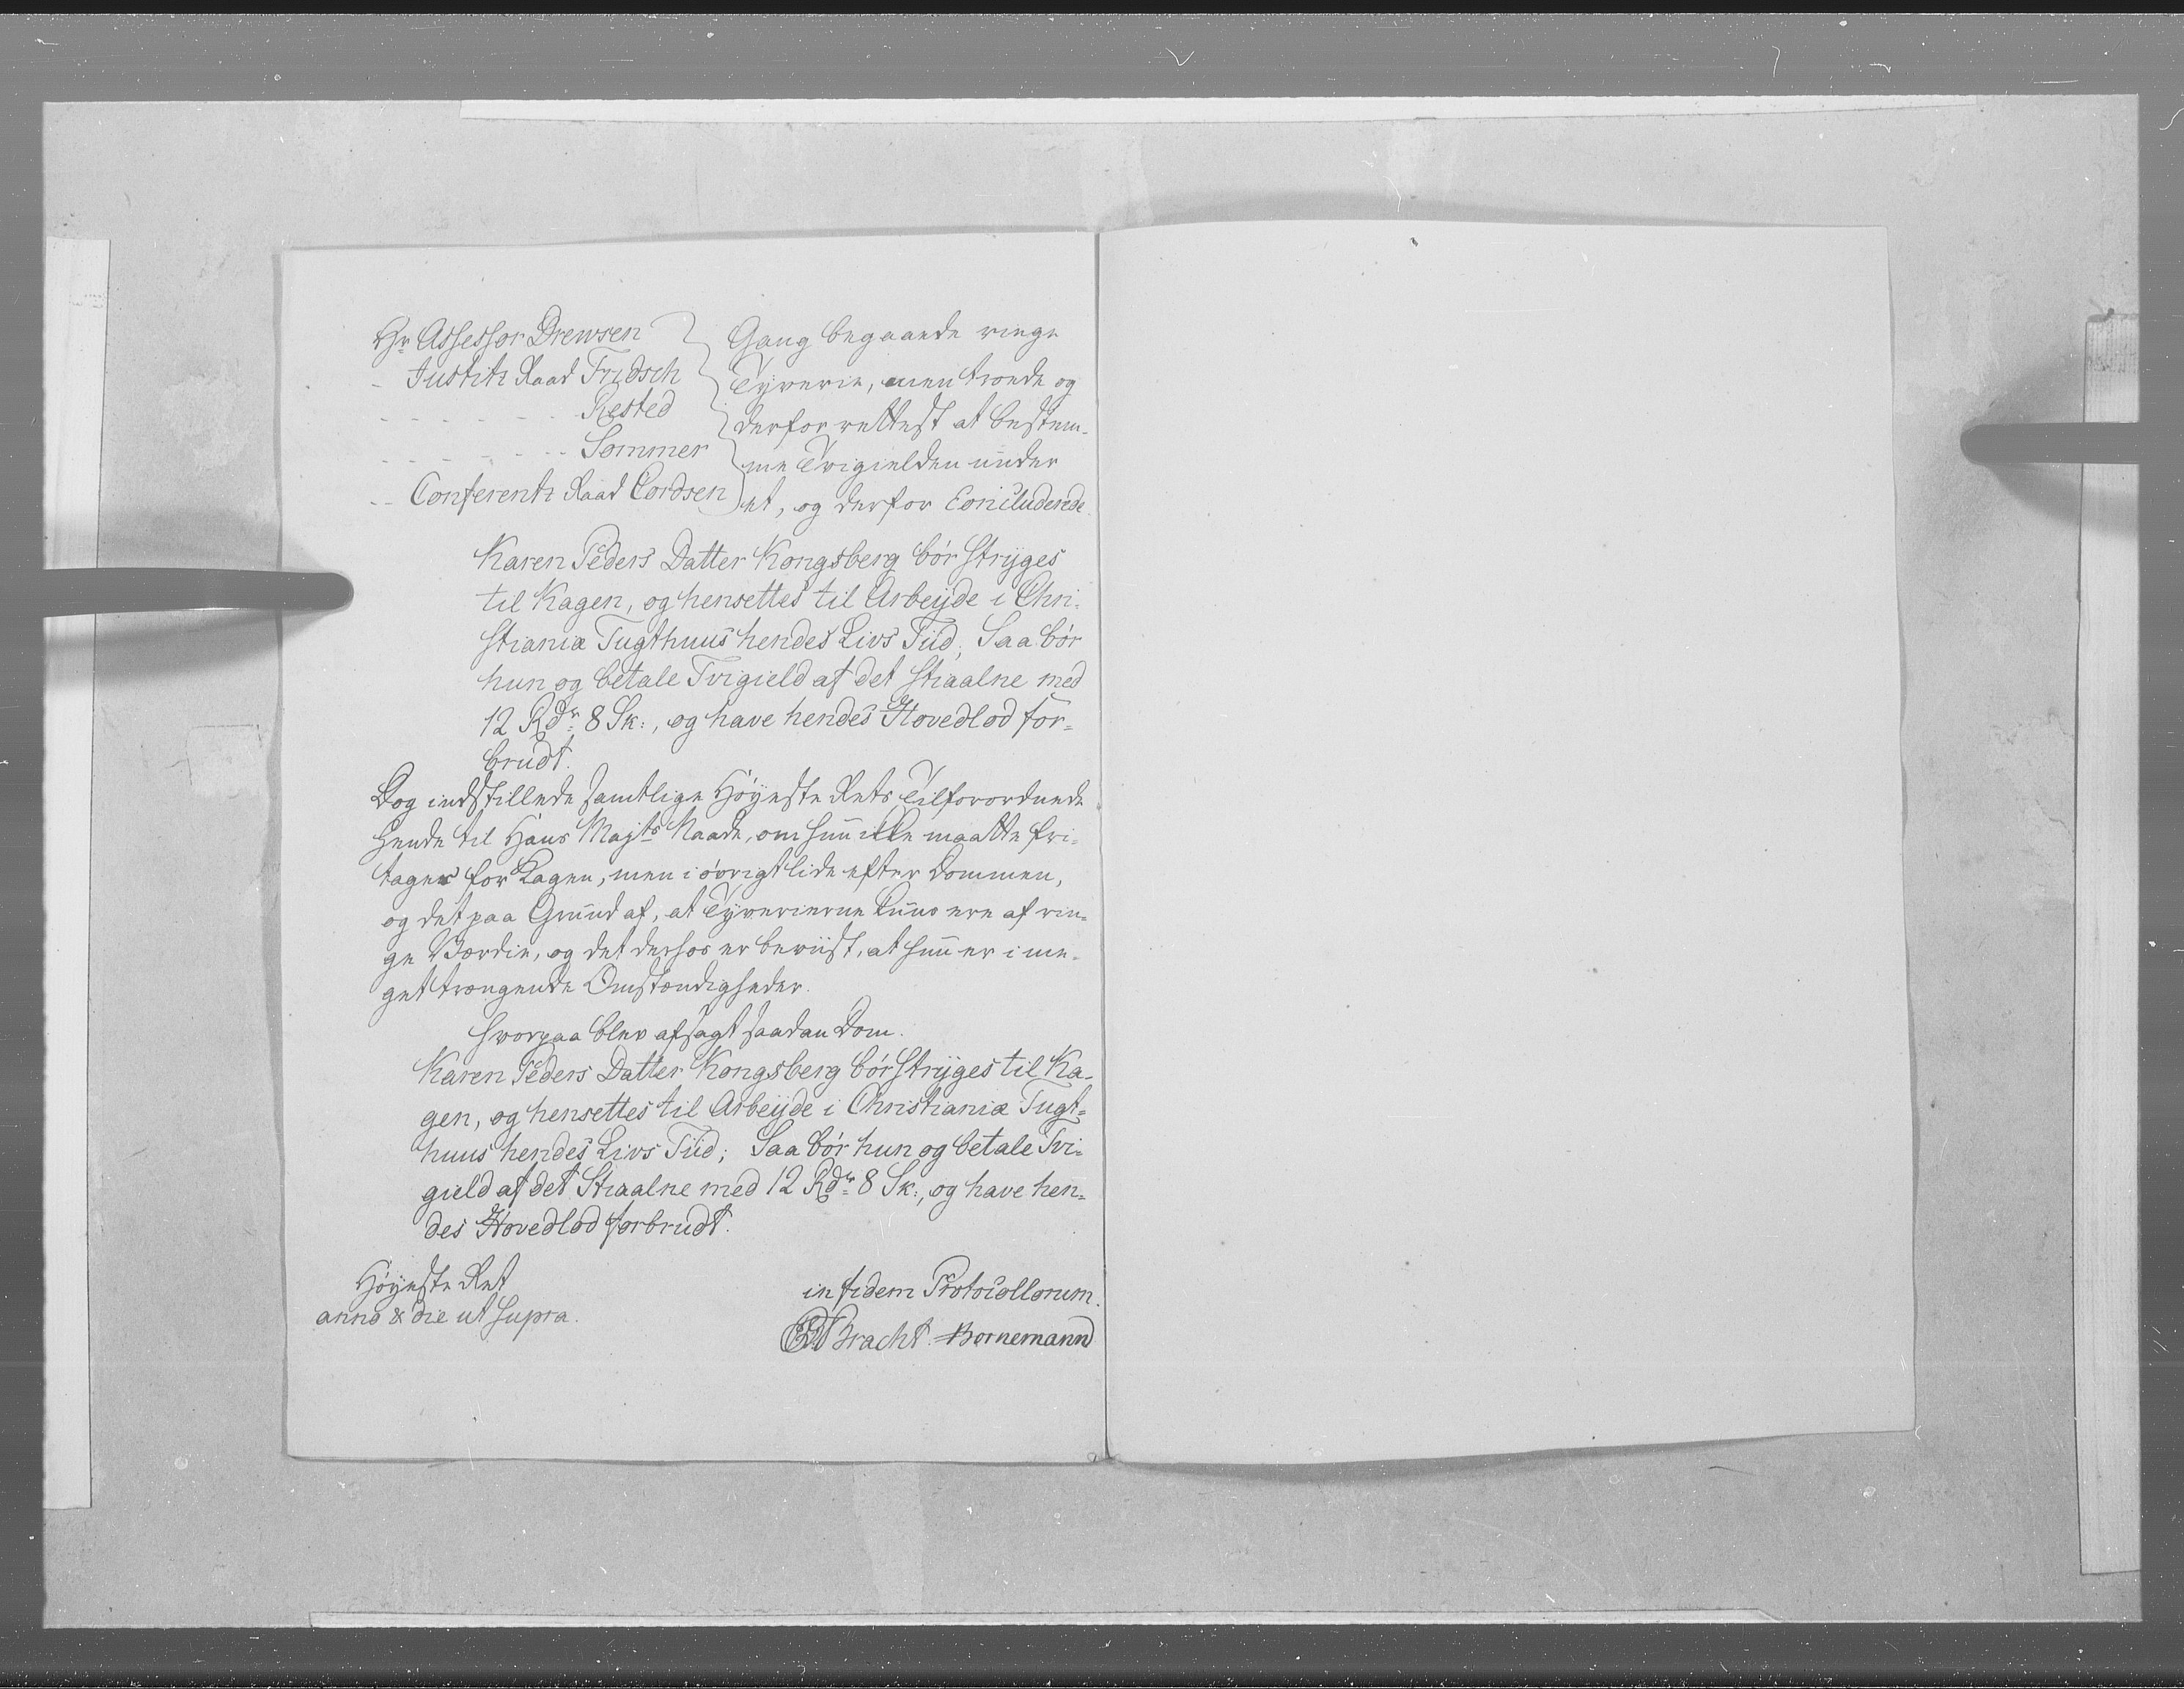 Hr Assessor Drewsen
- Justitz Raad Fridsch
- - - - - - - Rested
- - - - - - - Sommer
- - Conferentz Raad Cordsen
Gang begaaede ringe
Tyverie, men troede og
derfor rettest at bestem-
me Tvigielden under
et, og derfor Concluderede
Karen Peders Datter Kongsberg bør stryges
til Kagen, og hensettes til Arbeyde i Chri-
stianiæ Tugthuus hendes Livs Tiid; Saa bør
hun og betale Tvigield af det Stiaalne med
12 Rdr 8 Sk:, og have hendes Hovedlod for-
brudt.
Dog indstillede samtlige Høyeste Rets Tilforordnede
hende til Hans Majts Naade, om hun ikke maatte fri-
tages for Kagen, men i øvrigt lide efter Dommen,
og det paa Grund af, at Tyverierne kuns ere af rin-
ge Værdie, og det derhos er beviist, at hun er i me-
get trængende Omstændigheder.
Hvorpaa blev afsagt saadan Dom.
Karen Peders Datter Kongsberg bør stryges til Ka-
gen, og hensettes til Arbeyde i Christianiæ Tugt-
huus hendes Livs Tiid; Saa bør hun og betale Tvi-
gield af det Stiaalne med 12 Rdr 8 Sk:, og have hen-
des Hovedlod forbrudt.
Høyeste Ret
anno & die ut supra.
in fidem Protocollorum.
Bracht. Bornemann